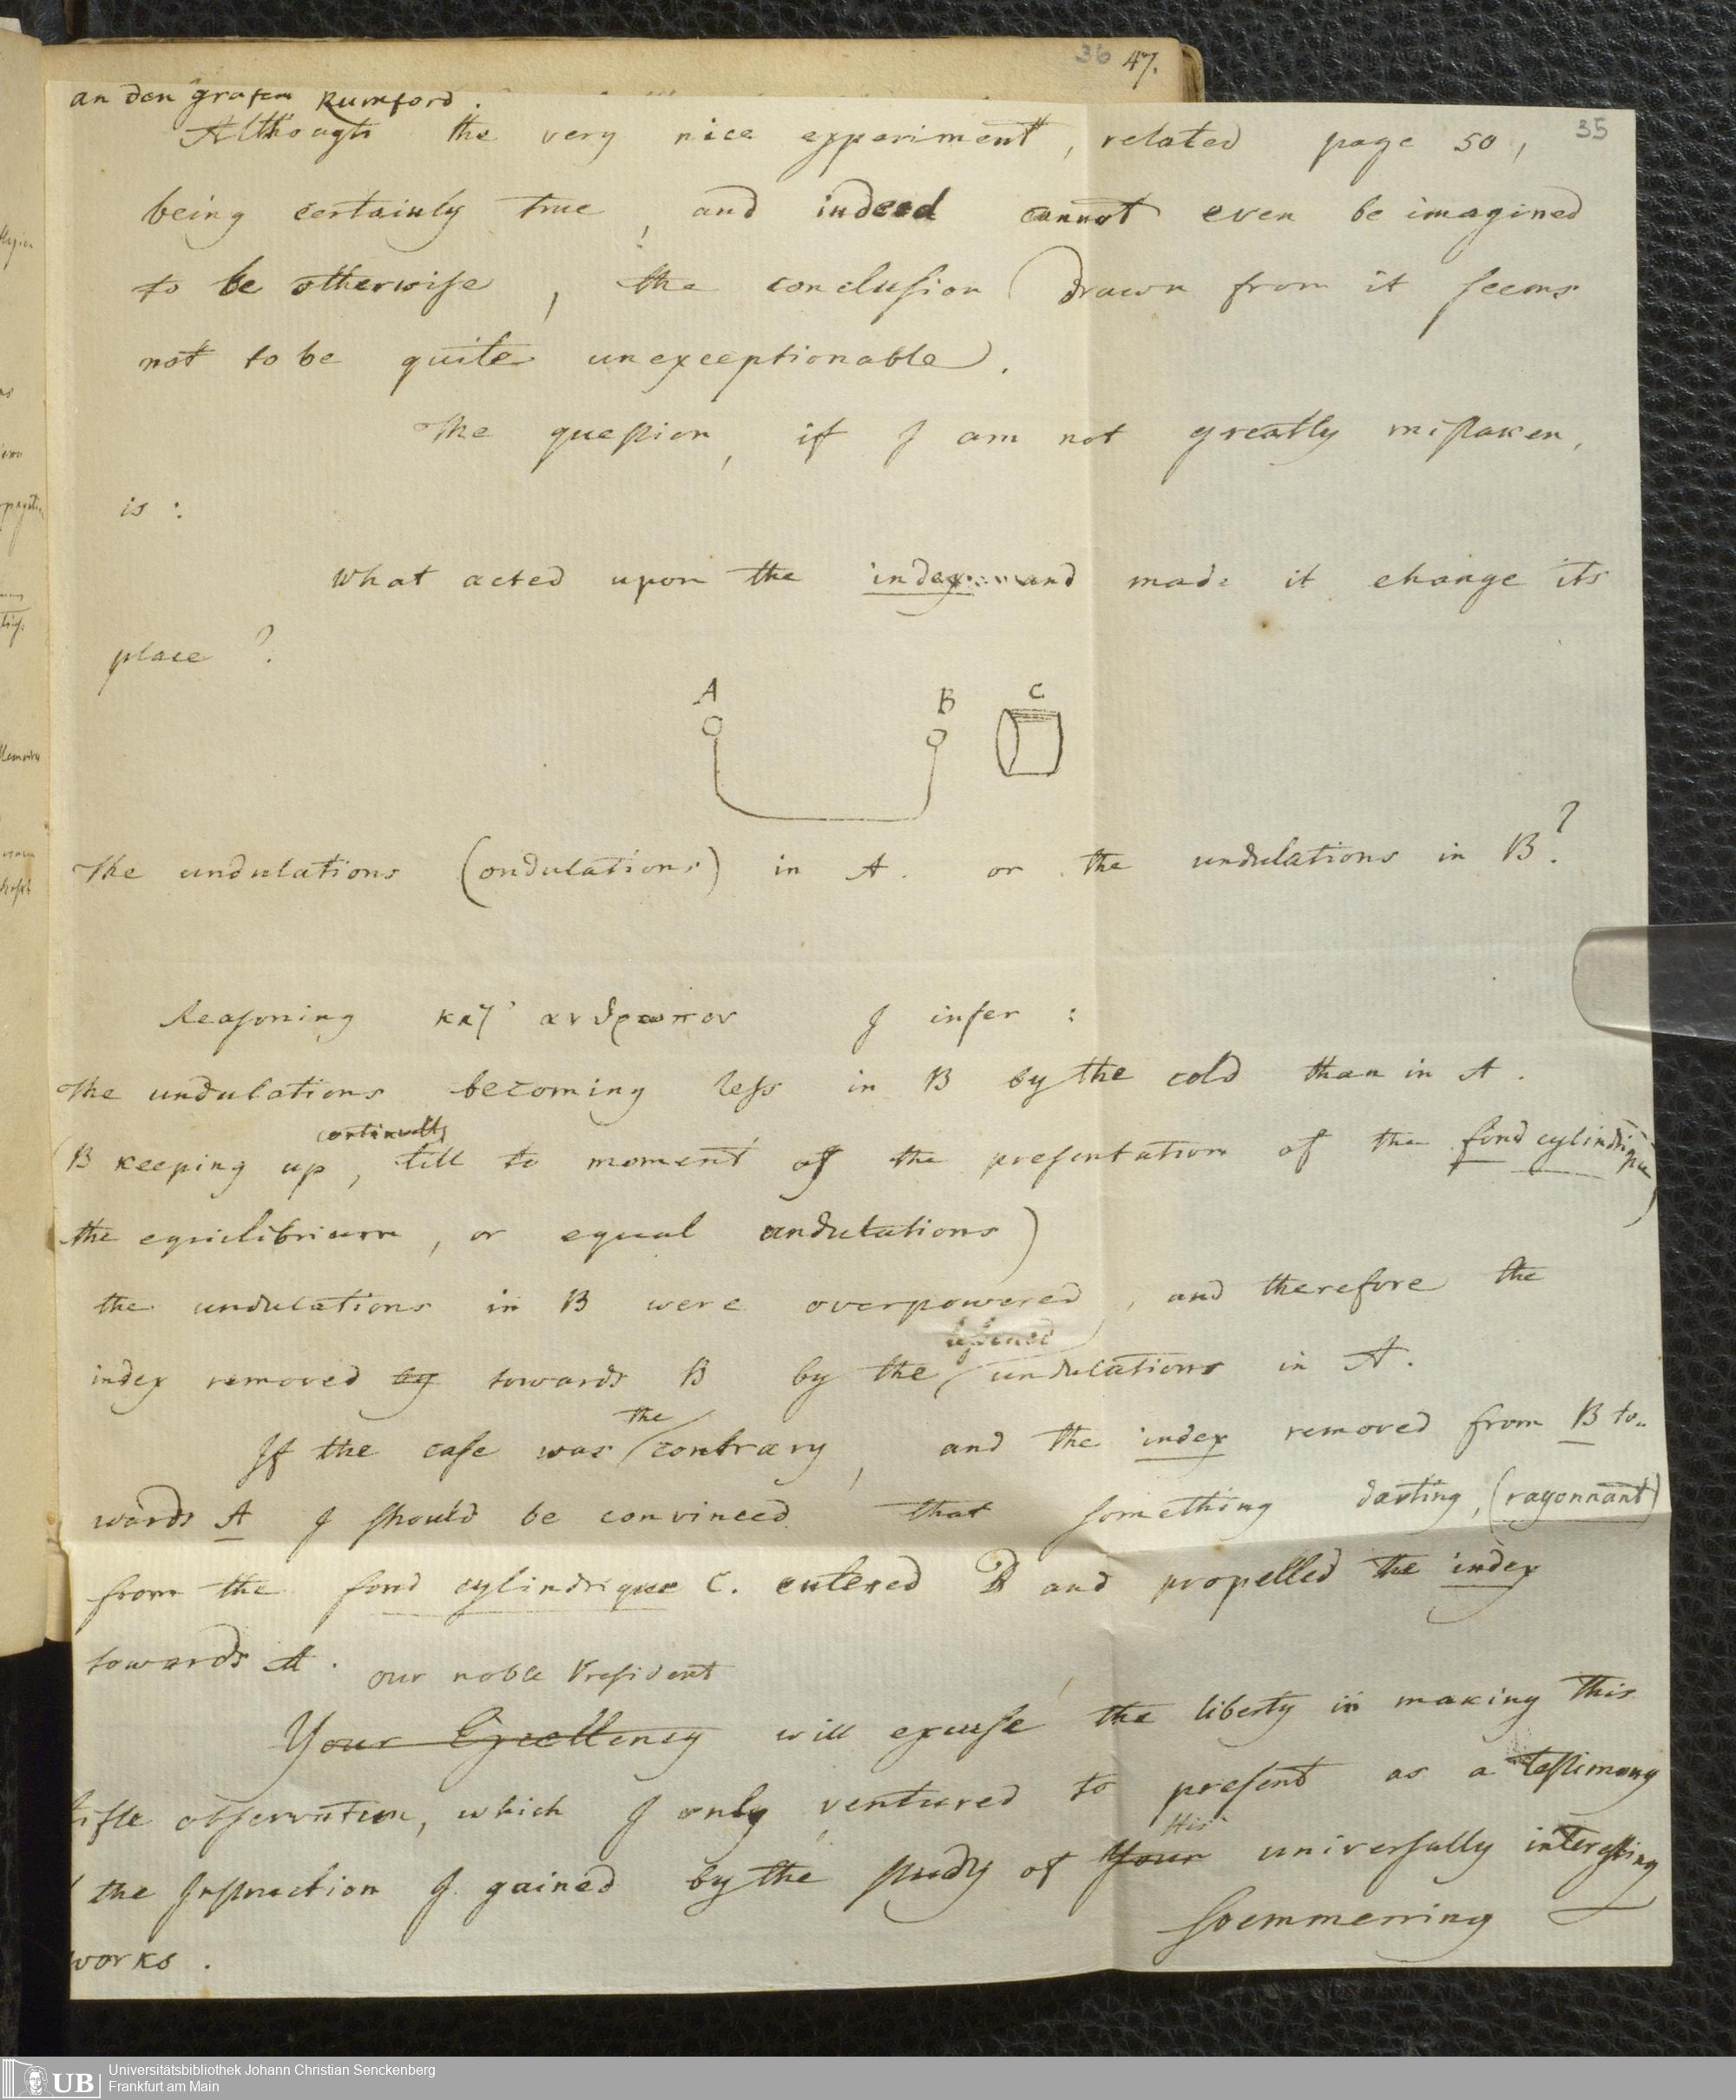 36 47.
an den grafen Rumford.
35
Although the very nice experiment, related page 50,
being certainly true, and indeed cannot even be imagined
to be otherwiſe, the concluſion drawn from it ſeems
not to be quite unexceptionable.
The queſtion, if I am not greatly miſtaken,
is:
What acted upon the index and made it change its
place?
A B C
The undulations (ondulations) in A. or the undulations in B?
Reaſoning κατ' ανθρωπον I infer:
The undulations becoming leſs in B by the cold than in A.
continually
(B keeping up, till to moment of the preſentation of the fond cylindrique,
the equilibrium, or equal undulations)
the undulations in B were overpowered, and therefore the
index removed by towards B by the undulations in A.
the
If the caſe was contrary, and the index removed from B to-
wards A I ſhould be convinced that ſomething darting, (rayonnant)
from the fond cylindrique C. entered B and propelled the index
towards A.
our noble Preſident
Your Excellency will excuſe the liberty in making this
obſervation, which I only ventured to preſent as a teſtimony
His
the Inſtruction I gained by the ſtudy of Your univerſally intereſting
works.
Soemmerring
UB Universitätsbibliothek Johann Christian Senckenberg
Frankfurt am Main